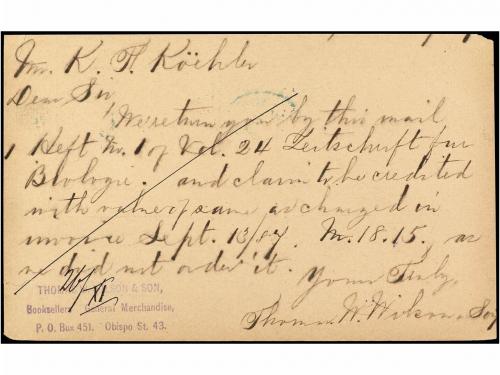 Mr. K. F. Köehler
Dear Sir
We return you by this mail
1 Heft No. 1 of Vol. 24 Zeitschrift fur
Biologie. and claim to be credited
with value of same as charged in
invoice Sept. 13/87. M. 18.15, as
we did not order it.
Yours Truly,
Thomas W. Wilson & Son
26/XI
& SON,
Booksellers General Merchandise,
P. O. Box 451. Obispo St. 43.